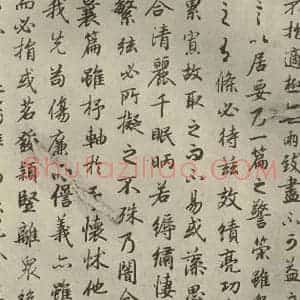 適極無兩致盡不可益
以居要乃一篇之警策雖
之有條必待茲效績亮功
累寡故取之而不易或藻思
合清麗千眠炳若縟繡悽
繁絃必所擬之不殊乃闇合
曩篇雖杼軸於予懷怵他
我先苟傷廉愆義亦雖
而必捐或若發穎豎離衆
Shufaziliao.com